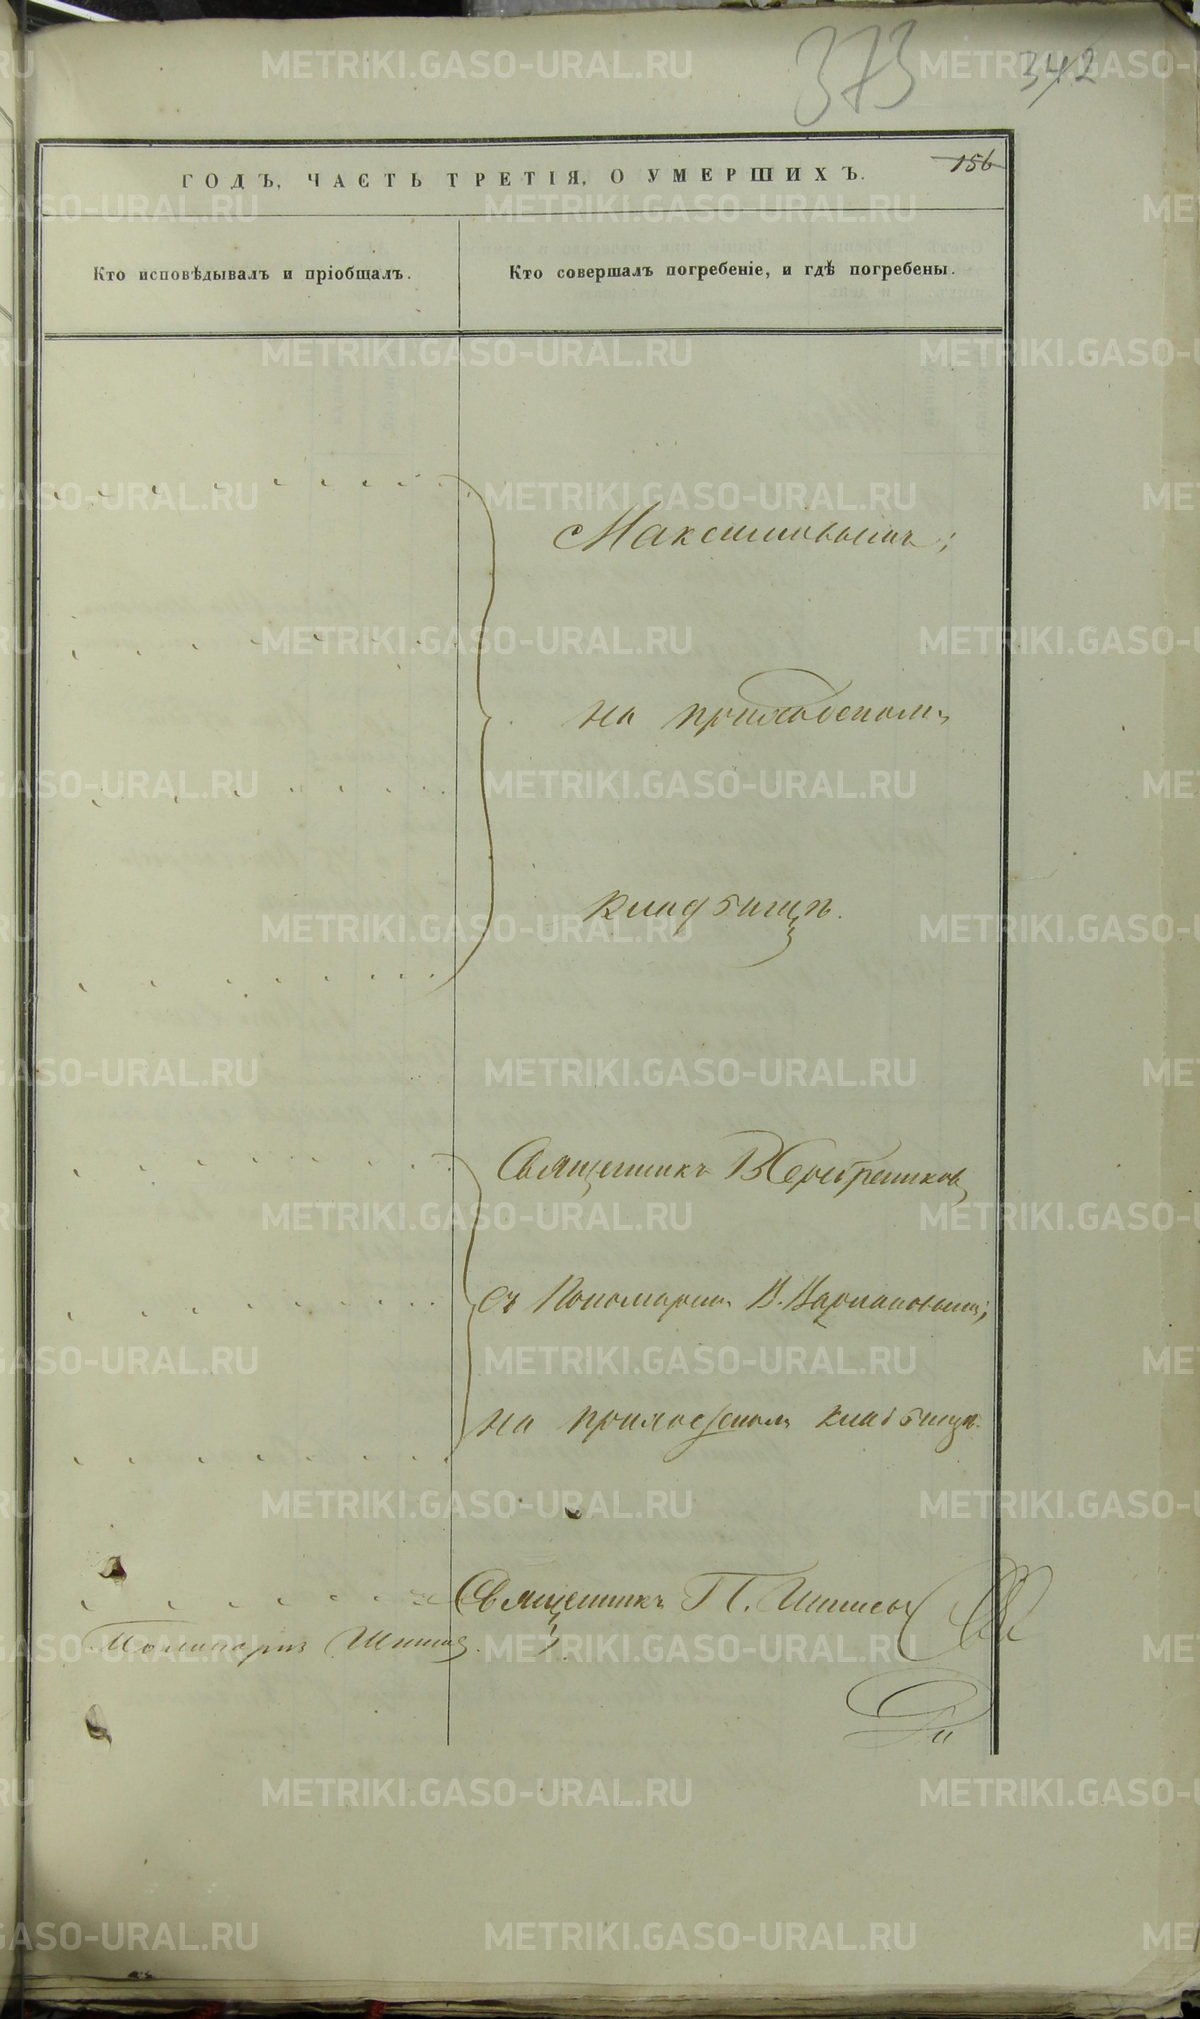 373
342
156
ГОДЪ, ЧАСТЬ ТРЕТІЯ, О УМЕРШИХЪ.
Кто исповѣдывалъ и пріобщалъ.
Кто совершалъ погребеніе, и гдѣ погребены.
Максимовымъ;
на приходскомъ
кладбищѣ.
Священникъ В Серебреников
съ Пономаремъ В.
на приходскомъ кладбищѣ.
Священникъ П.
METRIKI.GASO-URAL.RU